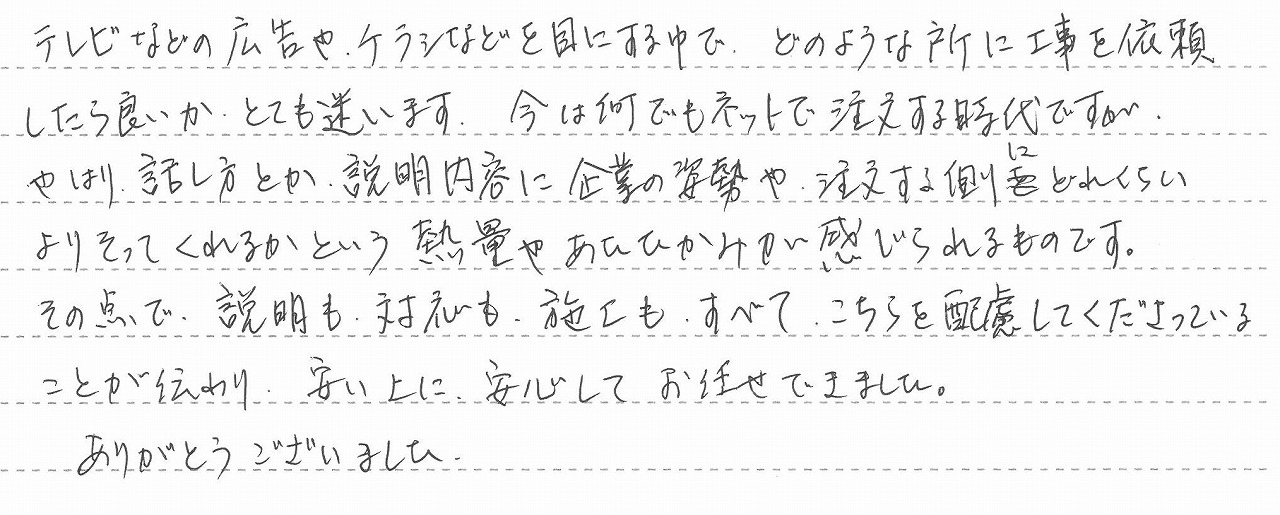 テレビなどの広告や、チラシなどを目にする中で、どのような所に工事を依頼
したら良いか、とても迷います。今は何でもネットで注文する時代ですが、
やはり、話し方とか、説明内容に企業の姿勢や、注文する側にどれくらい
よりそってくれるかという熱量やあたたかみが感じられるものです。
その点で、説明も、対応も、施工も、すべて、こちらを配慮してくださっている
ことが伝わり、安い上に、安心してお任せできました。
ありがとうございました。